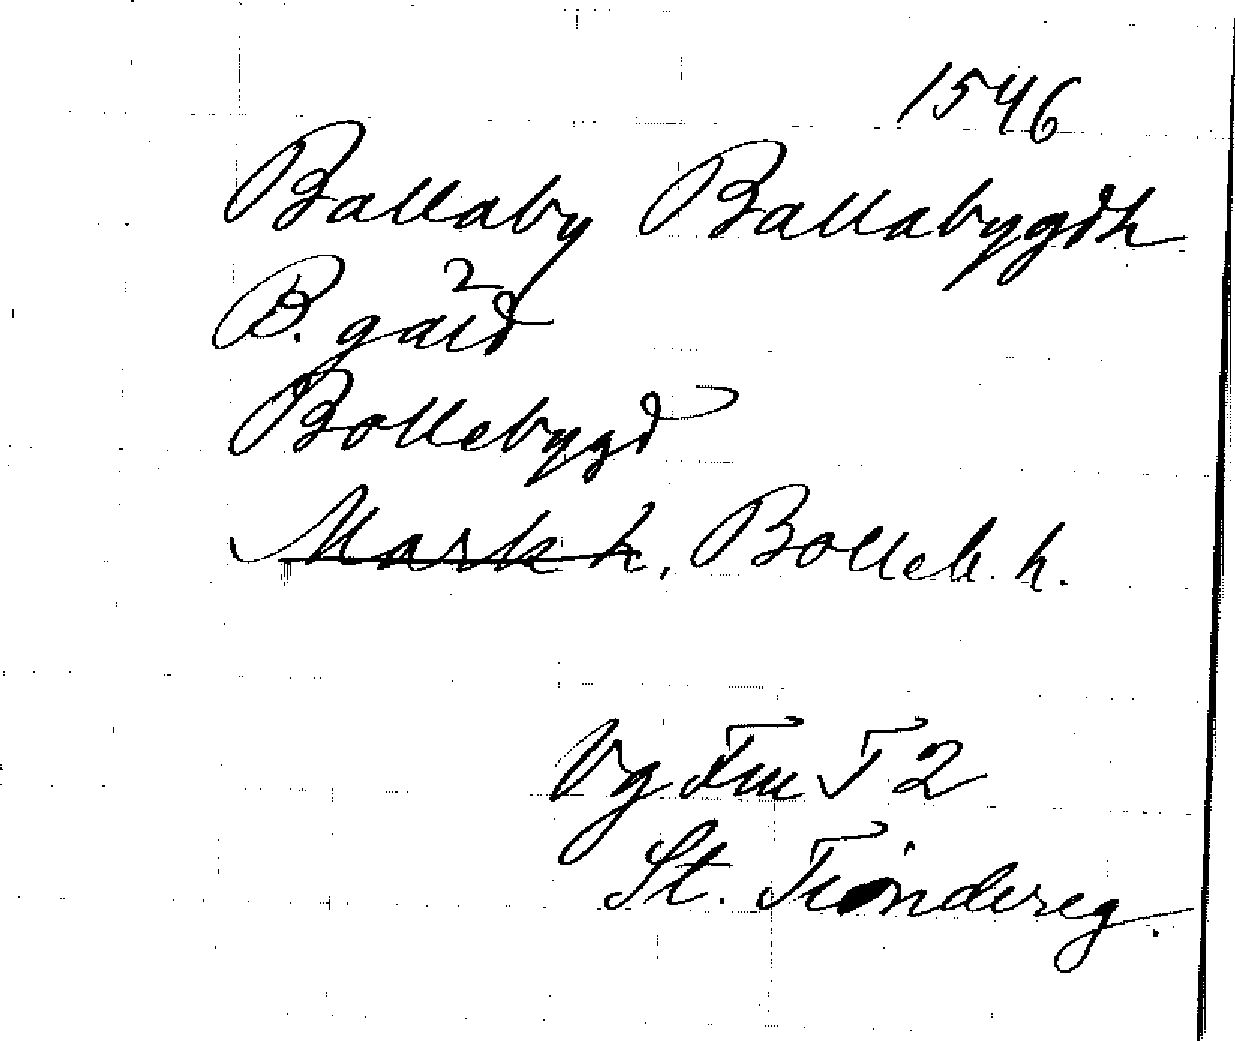 1546
Ballaby Ballabygdh
B. gård
Bollebygd
Marks h, Bolleb. h.
Vg Fm T 2
St. Tiondereg.